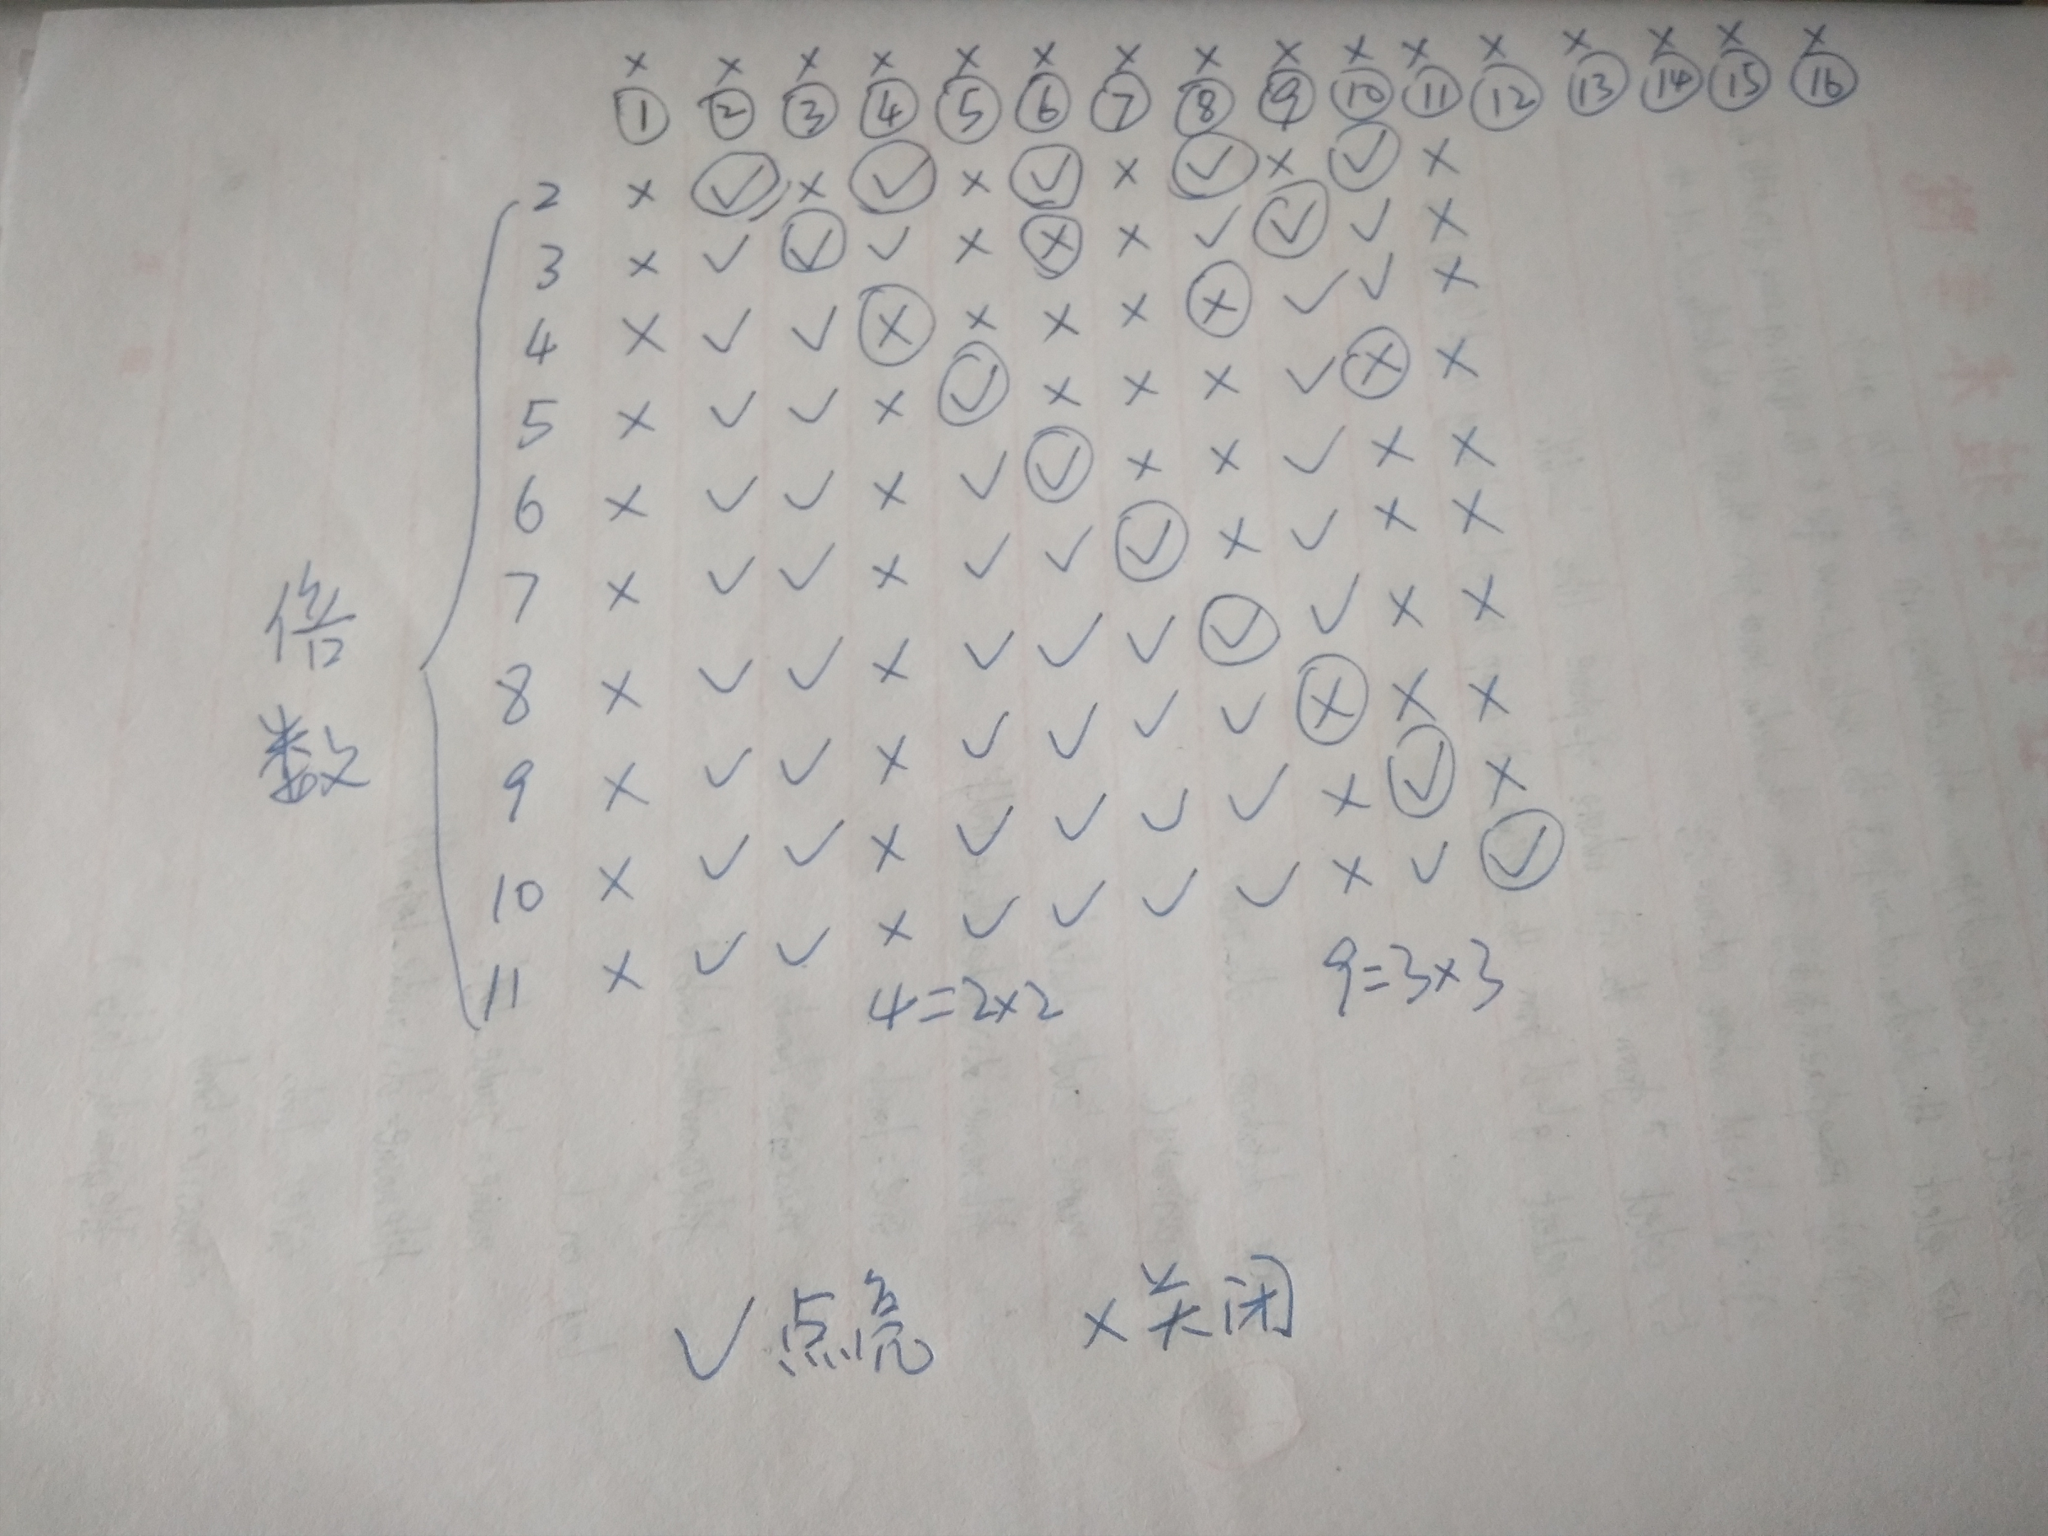 × × × × × × × × × × × × × × × ×
① ② ③ ④ ⑤ ⑥ ⑦ ⑧ ⑨ ⑩ ⑪ ⑫ ⑬ ⑭ ⑮ ⑯
2 × ✓ × ✓ × ✓ × ✓ × ✓ ×
3 × ✓ ✓ ✓ × × × ✓ ✓ ✓ ×
4 × ✓ ✓ × × × × × ✓ ✓ ×
5 × ✓ ✓ × ✓ × × × ✓ × ×
6 × ✓ ✓ × ✓ ✓ × × ✓ × ×
7 × ✓ ✓ × ✓ ✓ ✓ × ✓ × ×
8 × ✓ ✓ × ✓ ✓ ✓ ✓ ✓ × ×
9 × ✓ ✓ × ✓ ✓ ✓ ✓ × × ×
10 × ✓ ✓ × ✓ ✓ ✓ ✓ × ✓ ×
11 × ✓ ✓ × ✓ ✓ ✓ ✓ × ✓ ✓
倍
数
4=2×2 9=3×3
✓点亮 ×关闭